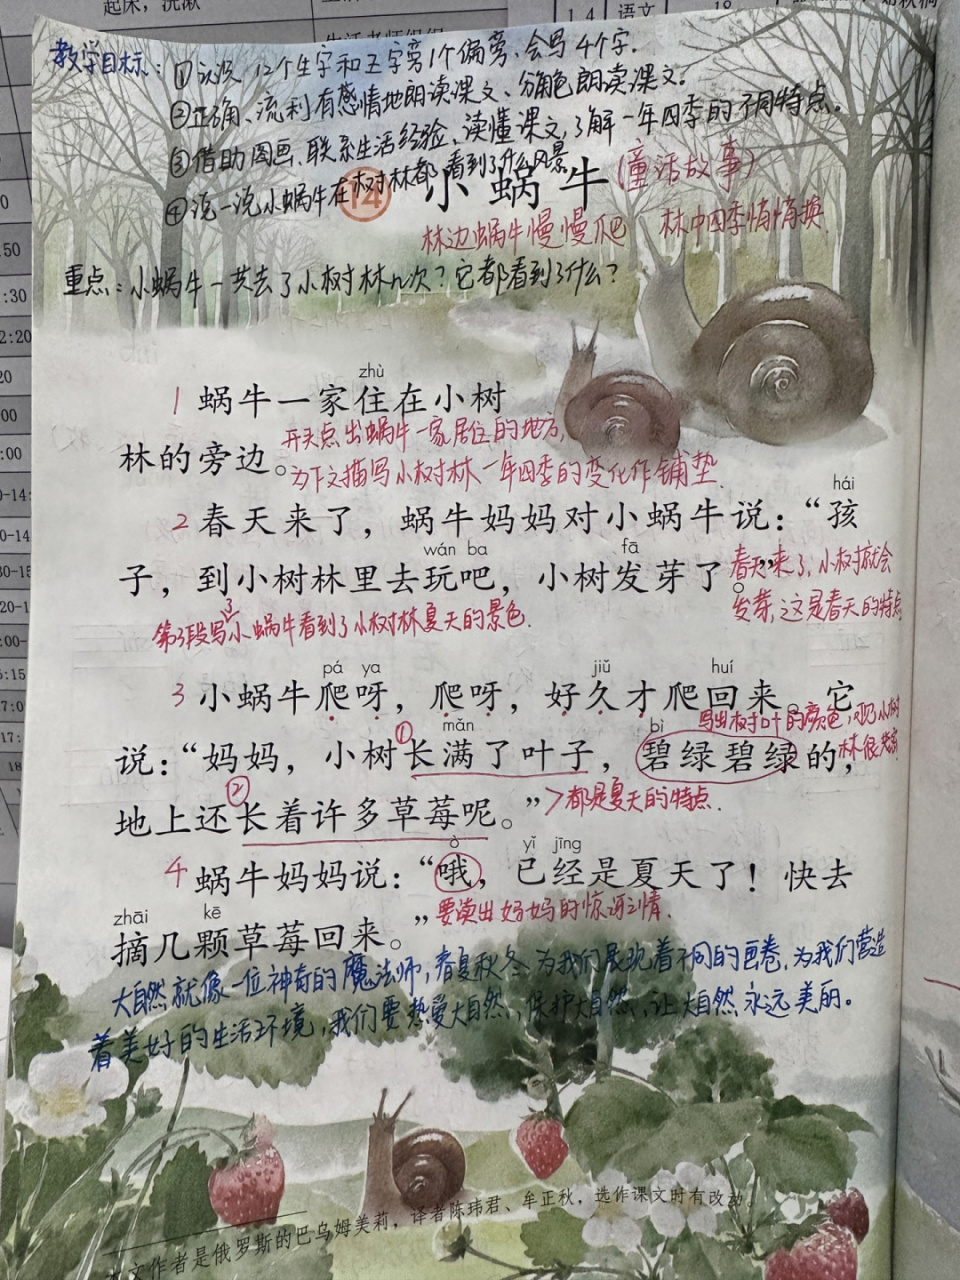 起床，洗漱
14 语文 18
教学目标：①认识12个生字和王字旁1个偏旁、会写4个字.
②正确、流利有感情地朗读课文、分角色朗读课文。
③借助图画、联系生活经验、读懂课文，了解一年四季的不同特点.
④说一说小蜗牛在树林都看到了什么风景
14 小蜗牛 (童话故事)
林边蜗牛慢慢爬 林中四季悄悄换.
重点：小蜗牛一共去了小树林几次？它都看到了什么？
zhù
1 蜗牛一家住在小树
林的旁边。
开头点出蜗牛一家居住的地方，
为下文描写小树林一年四季的变化作铺垫.
hái
2 春天来了，蜗牛妈妈对小蜗牛说：“孩
wán ba fā
子，到小树林里去玩吧，小树发芽了。”
春天来了，小树就会
发芽，这是春天的特点
3
第3段写小蜗牛看到了小树林夏天的景色.
pá ya jiǔ huí
3 小蜗牛爬呀，爬呀，好久才爬回来。它
写出树叶的颜色，
① mǎn bì
说：“妈妈，小树长满了叶子，碧绿碧绿的，
②
地上还长着许多草莓呢。”
都是夏天的特点.
ò yǐ jīng
4 蜗牛妈妈说：“哦，已经是夏天了！快去
要读出妈妈的惊讶之情.
zhāi kē
摘几颗草莓回来。”
大自然就像一位神奇的魔法师，春夏秋冬为我们展现着不同的画卷，为我们营造
着美好的生活环境，我们要热爱大自然，保护大自然，让大自然永远美的。
本文作者是俄罗斯的巴乌姆美莉，译者陈玮君、牟正秋，选作课文时有改动。